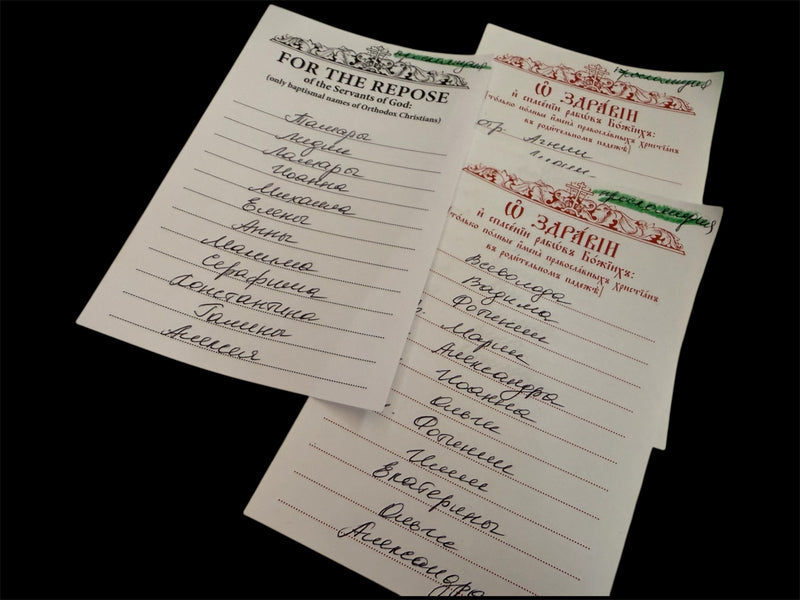 проскомидия
FOR THE REPOSE
of the Servants of God:
(only baptismal names of Orthodox Christians)
Тамары
Лидии
Тамары
Иоанна
Михаила
Елены
Анны
Максима
Серафима
Константина
Галины
Алексия
проскомидия
Ѡ ЗДРА́ВІИ
и҆ спасе́нїи рабѡ́въ Бо́жїихъ:
(то́лько по́лные и҆мена̀ правосла́вныхъ Христїа́нъ
въ роди́тельномъ падежѣ̀)
отр. Агнии
проскомидия
Ѡ ЗДРА́ВІИ
и҆ спасе́нїи рабѡ́въ Бо́жїихъ:
(то́лько по́лные и҆мена̀ правосла́вныхъ Христїа́нъ
въ роди́тельномъ падежѣ̀)
Всеволода
Вадима
Фотинии
Марии
Александра
Иоанна
Ольги
Фотинии
Екатерины
Ольги
Александра